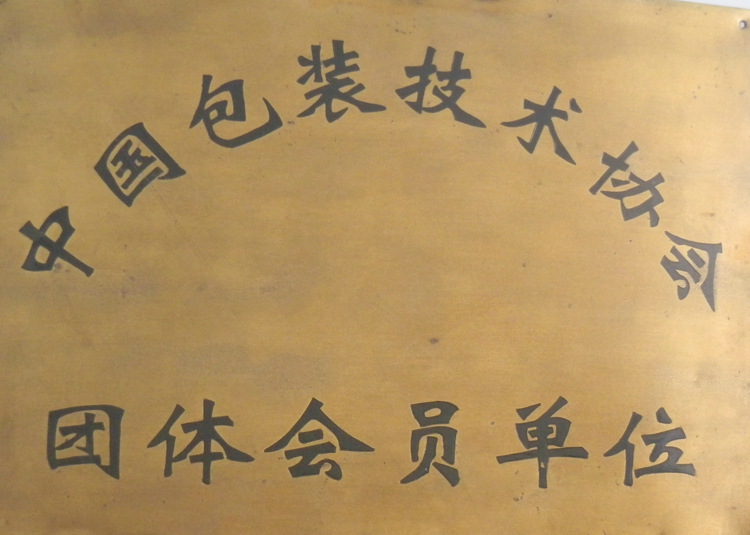 中国包装技术协会
团体会员单位